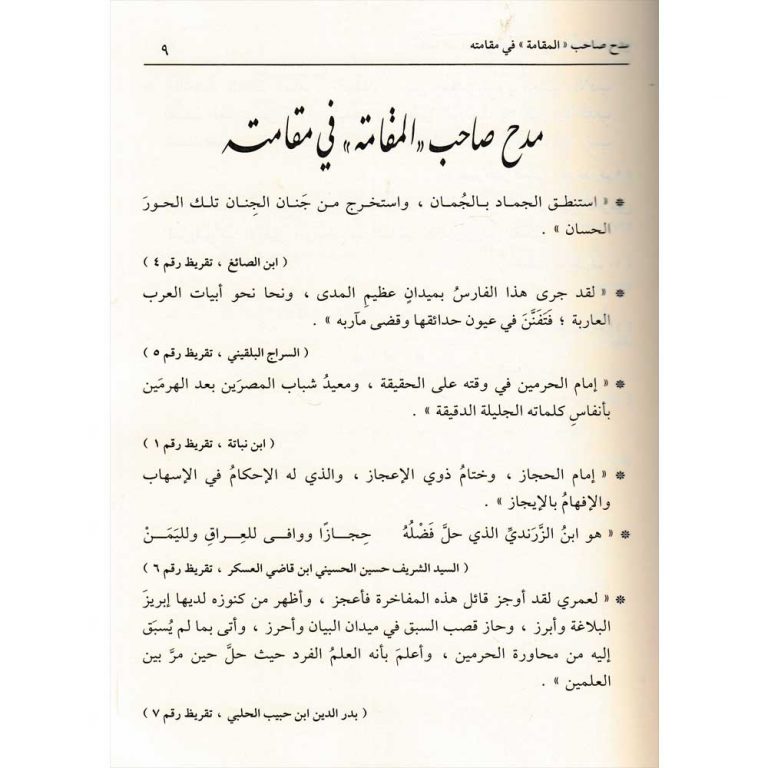 مدح صاحب «المقامة» في مقامته
٩
مدح صاحب «المقامة» في مقامته
* « استنطق الجماد بالجُمان ، واستخرج من جَنان الجِنان تلك الحورَ
الحسان » .
( ابن الصائغ ، تقريظ رقم ٤ )
* « لقد جرى هذا الفارسُ بميدانٍ عظيمِ المدى ، ونحا نحو أبيات العرب
العاربة ؛ فَتَفَنَّنَ في عيون حدائقها وقضى مآربه » .
( السراج البلقيني ، تقريظ رقم ٥ )
* « إمام الحرمين في وقته على الحقيقة ، ومعيدُ شباب المصرَين بعد الهرمَين
بأنفاسِ كلماته الجليلة الدقيقة » .
( ابن نباتة ، تقريظ رقم ١ )
* « إمام الحجاز ، وختامُ ذوي الإعجاز ، والذي له الإحكامُ في الإسهاب
والإفهامُ بالإيجاز » .
* « هو ابنُ الزَّرَنديِّ الذي حلَّ فَضْلُهُ حِجازًا ووافى للعِراقِ ولليَمَنْ
( السيد الشريف حسين الحسيني ابن قاضي العسكر ، تقريظ رقم ٦ )
* « لعمري لقد أوجز قائل هذه المفاخرة فأعجز ، وأظهر من كنوزه لديها إبريزَ
البلاغة وأبرز ، وحاز قصب السبق في ميدان البيان وأحرز ، وأتى بما لم يُسبَق
إليه من محاورة الحرمين ، وأعلمَ بأنه العلمُ الفرد حيث حلَّ حين مرَّ بين
العلمين » .
( بدر الدين ابن حبيب الحلبي ، تقريظ رقم ٧ )